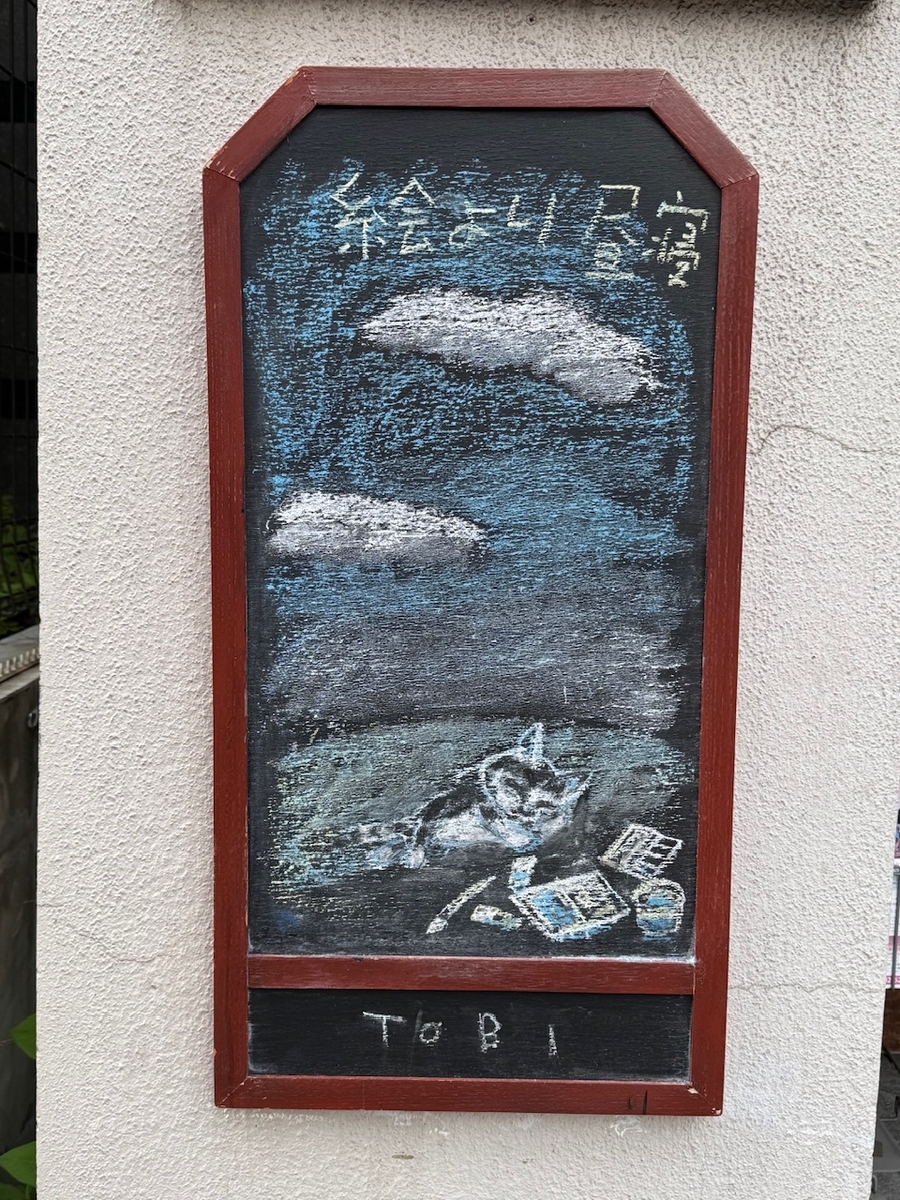 絵より昼寝
ToBI